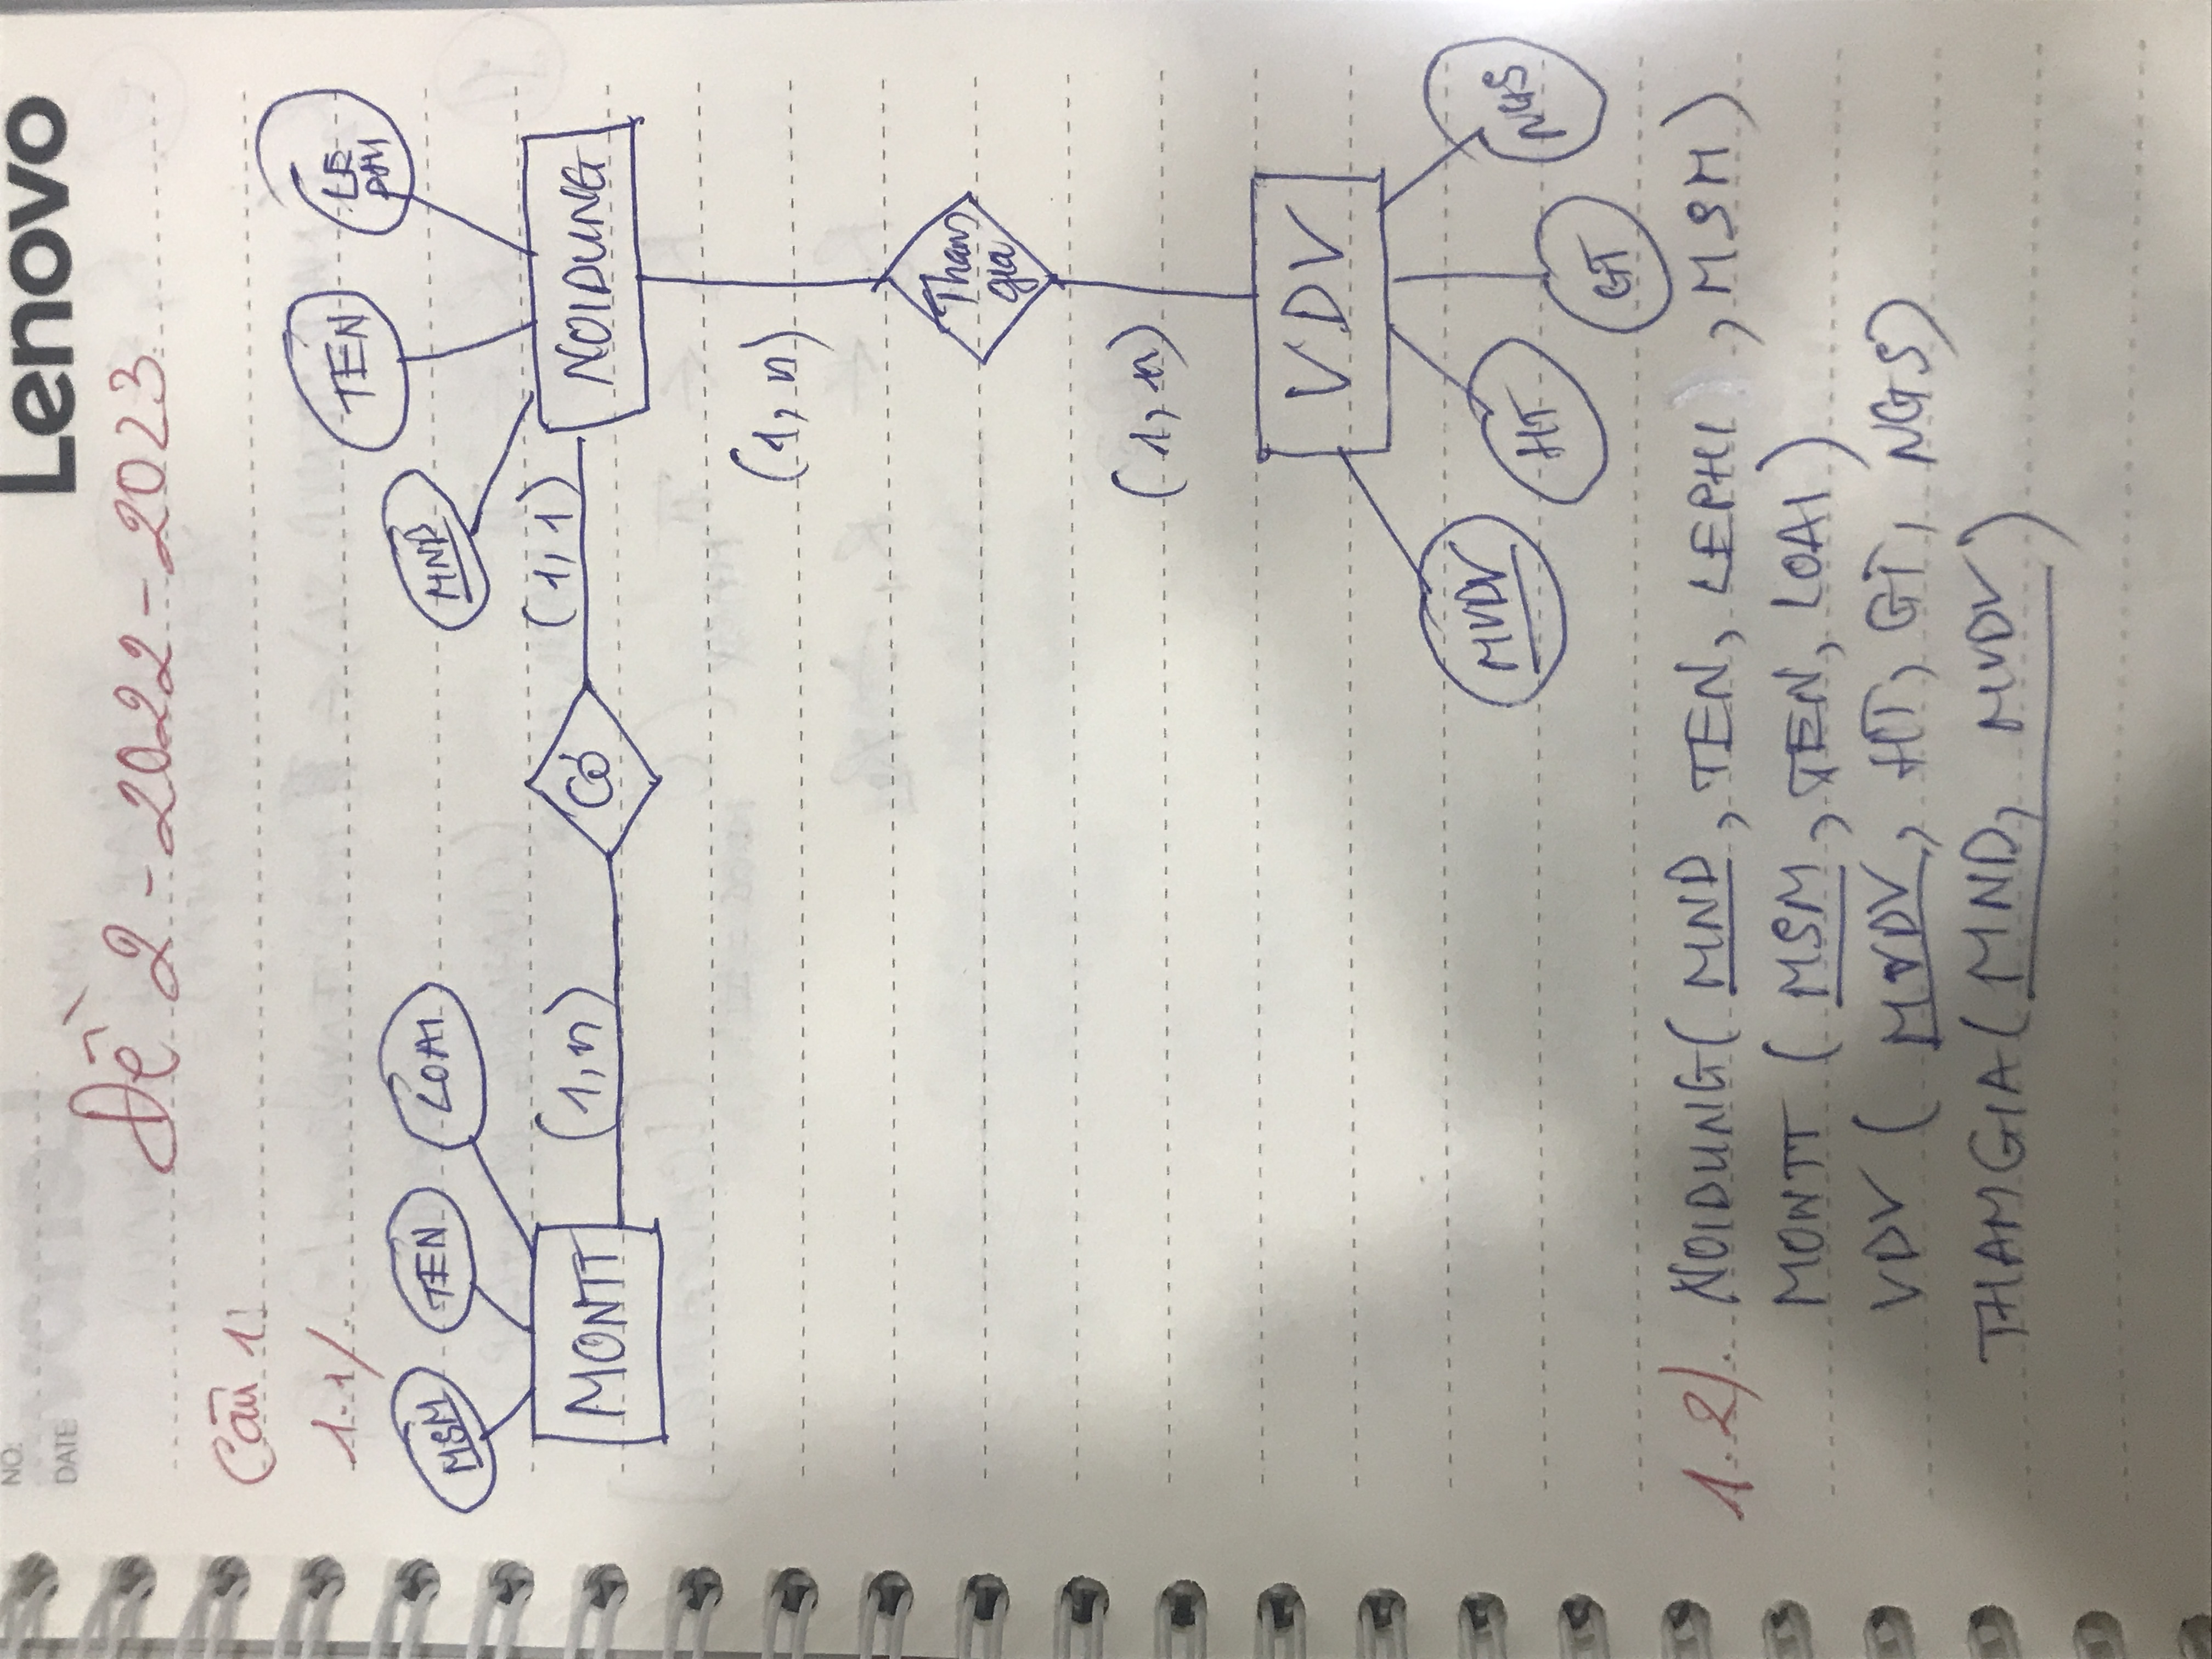 NO:
DATE
Lenovo
Đề 2 - 2022-2023
Câu 1:
1.1/.
MSM TEN LOAI MND TEN LE PHI
MONTT (1,n) Có (1,1) NOIDUNG
(1,n)
Tham
gia
(1,n)
VDV
MVDV HT GT NGS
1.2). NOIDUNG(MND, TEN, LEPHI , MSM)
MONTT (MSM, TEN, LOAI)
VDV (MVDV, HT, GT, NGS)
THAMGIA(MND, MVDV)